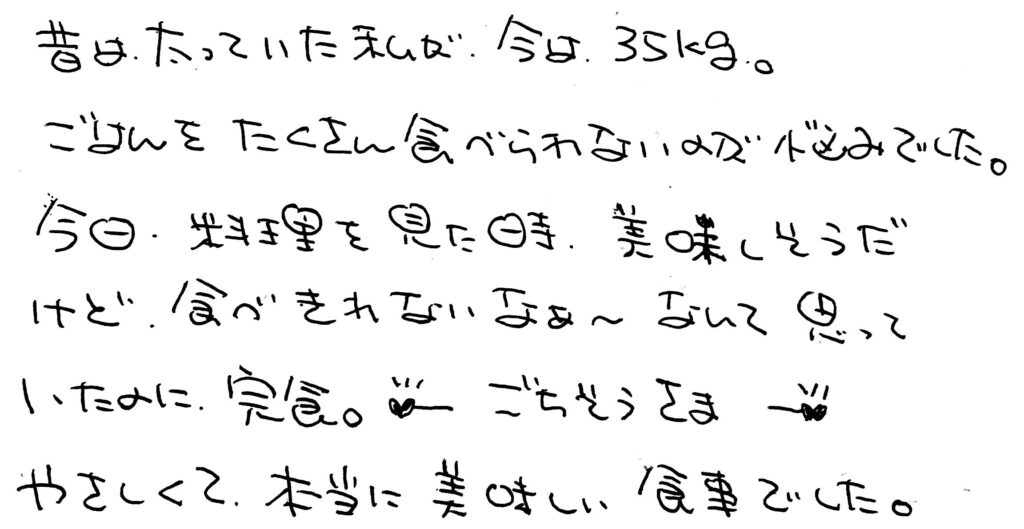 昔は、太っていた私が、今は、35kg。
ごはんを たくさん食べられないのが悩みでした。
今日、料理を見た時、美味しそうだ
けど、食べきれないなぁ〜 なんて 思って
いたのに、完食。 ごちそうさま
やさしくて、本当に美味しい 食事でした。